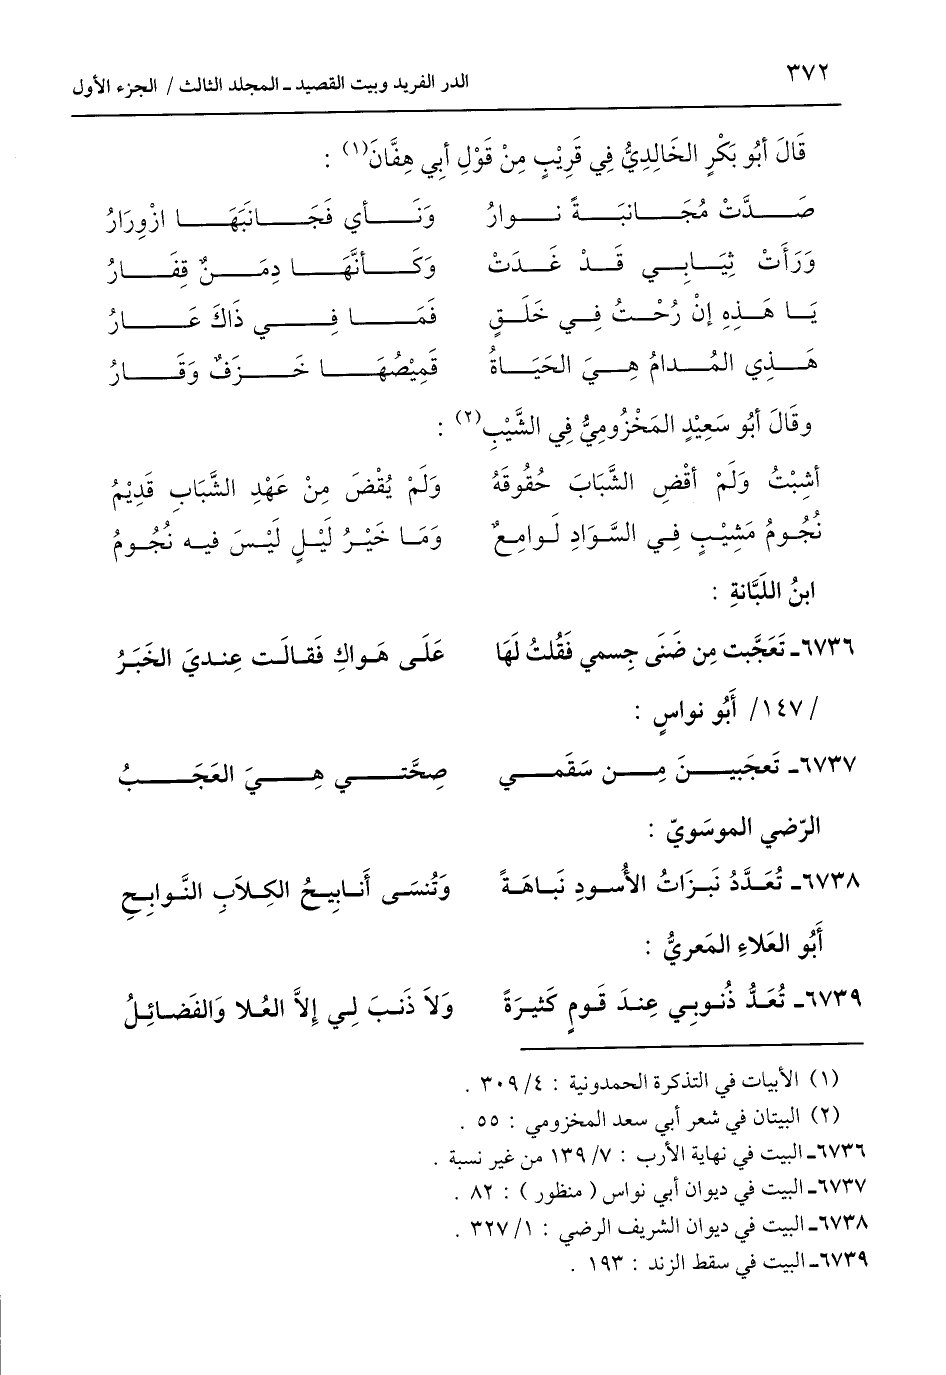 ٣٧٢ الدر الفريد وبيت القصيد ـ المجلد الثالث / الجزء الأول
قَالَ أَبُو بَكْرٍ الخَالِدِيُّ فِي قَرِيْبٍ مِنْ قَوْلِ أبِي هِفَّانَ(١) :
صَدَّتْ مُجَانبَةً نوارُ وَنَأي فَجَانَبَهَا ازْوِرَارُ
وَرَأَتْ ثِيَابِي قَدْ غَدَتْ وَكَأنَّهَا دِمَنٌ قِفَارُ
يَا هَذِهِ إنْ رُحْتُ فِي خَلَقٍ فَمَا فِي ذَاكَ عَارُ
هَذِي المُدامُ هِيَ الحَيَاةُ قَمِيْصُهَا خَزَفٌ وَقَارُ
وقَالَ أبُو سَعِيْدٍ المَخْزُومِيُّ فِي الشَّيْبِ(٢) :
أشِبْتُ وَلَمْ أقْضِ الشَّبَابَ حُقُوقَهُ وَلَمْ يُقْضَ مِنْ عَهْدِ الشَّبَابِ قَدِيْمُ
نُجُومُ مَشِيْبٍ فِي السَّوَادِ لَوامِعٌ وَمَا خَيْرُ لَيْلٍ لَيْسَ فيه نُجُومُ
ابنُ اللَبَّانةِ :
٦٧٣٦ـ تَعَجَّبت مِن ضَنَى جِسمي فَقُلتُ لَهَا عَلَى هَواكِ فَقالَت عِنديَ الخَبَرُ
/١٤٧/ أَبُو نواسٍ :
٦٧٣٧ـ تَعجَبينَ مِن سَقَمي صِحَّتي هِيَ العَجَبُ
الرّضي الموسَويّ :
٦٧٣٨ـ تُعَدَّدُ نَبزَاتُ الأُسودِ نَباهَةً وَتُنسَى أَنابيحُ الكِلاَبِ النَّوابِحِ
أَبُو العَلاءِ المَعريُّ :
٦٧٣٩ـ تُعَدُّ ذُنوبِي عِندَ قَومٍ كَثيرَةً وَلاَ ذَنبَ لِي إلاَّ العُلا وَالفَضائِلُ
(١) الأبيات في التذكرة الحمدونية : ٤/ ٣٠٩ .
(٢) البيتان في شعر أبي سعد المخزومي : ٥٥ .
٦٧٣٦ـ البيت في نهاية الأرب : ٧/ ١٣٩ من غير نسبة .
٦٧٣٧ـ البيت في ديوان أبي نواس ( منظور ) : ٨٢ .
٦٧٣٨ـ البيت في ديوان الشريف الرضي : ١/ ٣٢٧ .
٦٧٣٩ـ البيت في سقط الزند : ١٩٣ .